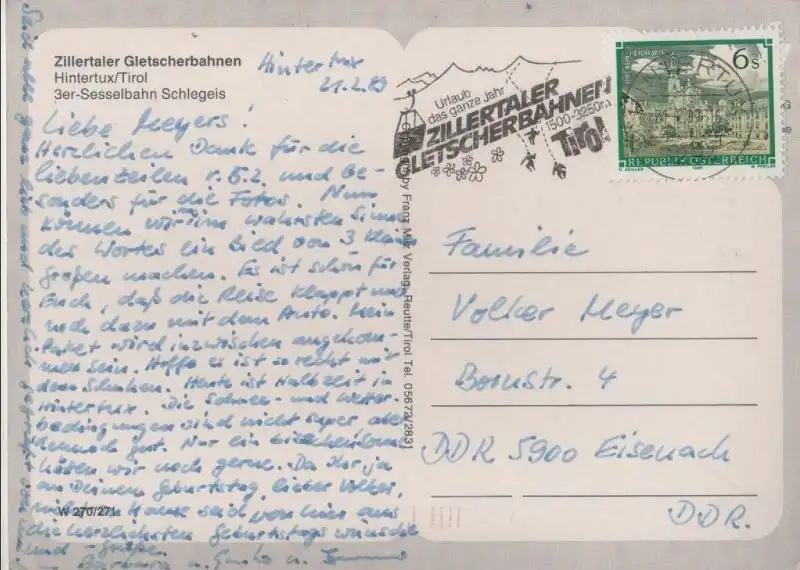 Zillertaler Gletscherbahnen
Hintertux/Tirol
3er-Sesselbahn Schlegeis
Hintertux
21.2.89
Liebe Meyers!
Herzlichen Dank für die
lieben Zeilen v. 5.2. und be-
sonders für die Fotos. Nun
können wir im wahrsten Sinne
des Wortes ein Bild von 3
großen machen. Es ist schön für
Euch, daß die Reise klappt und
noch dazu mit dem Auto. Mein
Paket wird inzwischen angekom-
men sein. Hoffe es ist so recht mit
den Schuhen. Heute ist Halbzeit in
Hintertux. Die Schnee- und Wetter-
bedingungen sind nicht super aber
dennoch gut. Nur ein bisschen Sonne
hätten wir noch gerne. Da Ihr ja
an Deinem Geburtstag, lieber Volker,
nicht zu Hause seid von hier aus
die herzlichsten Geburtstagswünsche
und -grüße
Barbara u. u.
Seid alle ganz lieb und herzlich gegrüßt von
W 270/271
by Franz Milz Verlag, Reutte/Tirol Tel. 05672/2831
Urlaub
das ganze Jahr
ZILLERTALER
GLETSCHERBAHNEN
1500-3250m
Tirol
6s
REPUBLIK ÖSTERREICH
Familie
Volker Meyer
Bornstr. 4
DDR 5900 Eisenach
DDR.